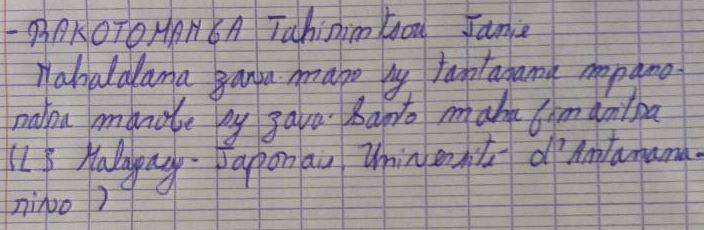 - RAKOTOMANGA Tahirimtsoa Janie
Mahalalana zava-maro sy tantarana mpano-
ratra marobe sy zava-kanto maha fimantra
(L3 Malagasy - Japonais, Université d'Antanana-
rivo)